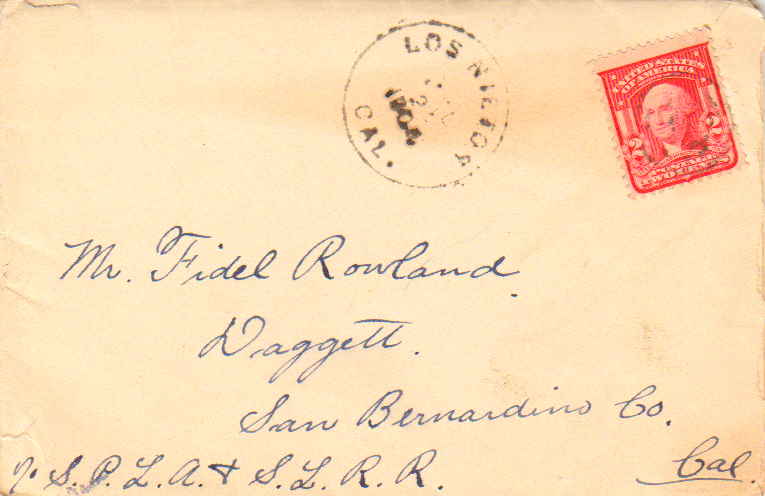 LOS NIETOS
1904
CAL.
UNITED STATES
OF AMERICA
2 2
Mr. Fidel Rowland.
Daggett.
San Bernardino Co.
Cal.
℅ S. P. L. A. & S. L. R. R.